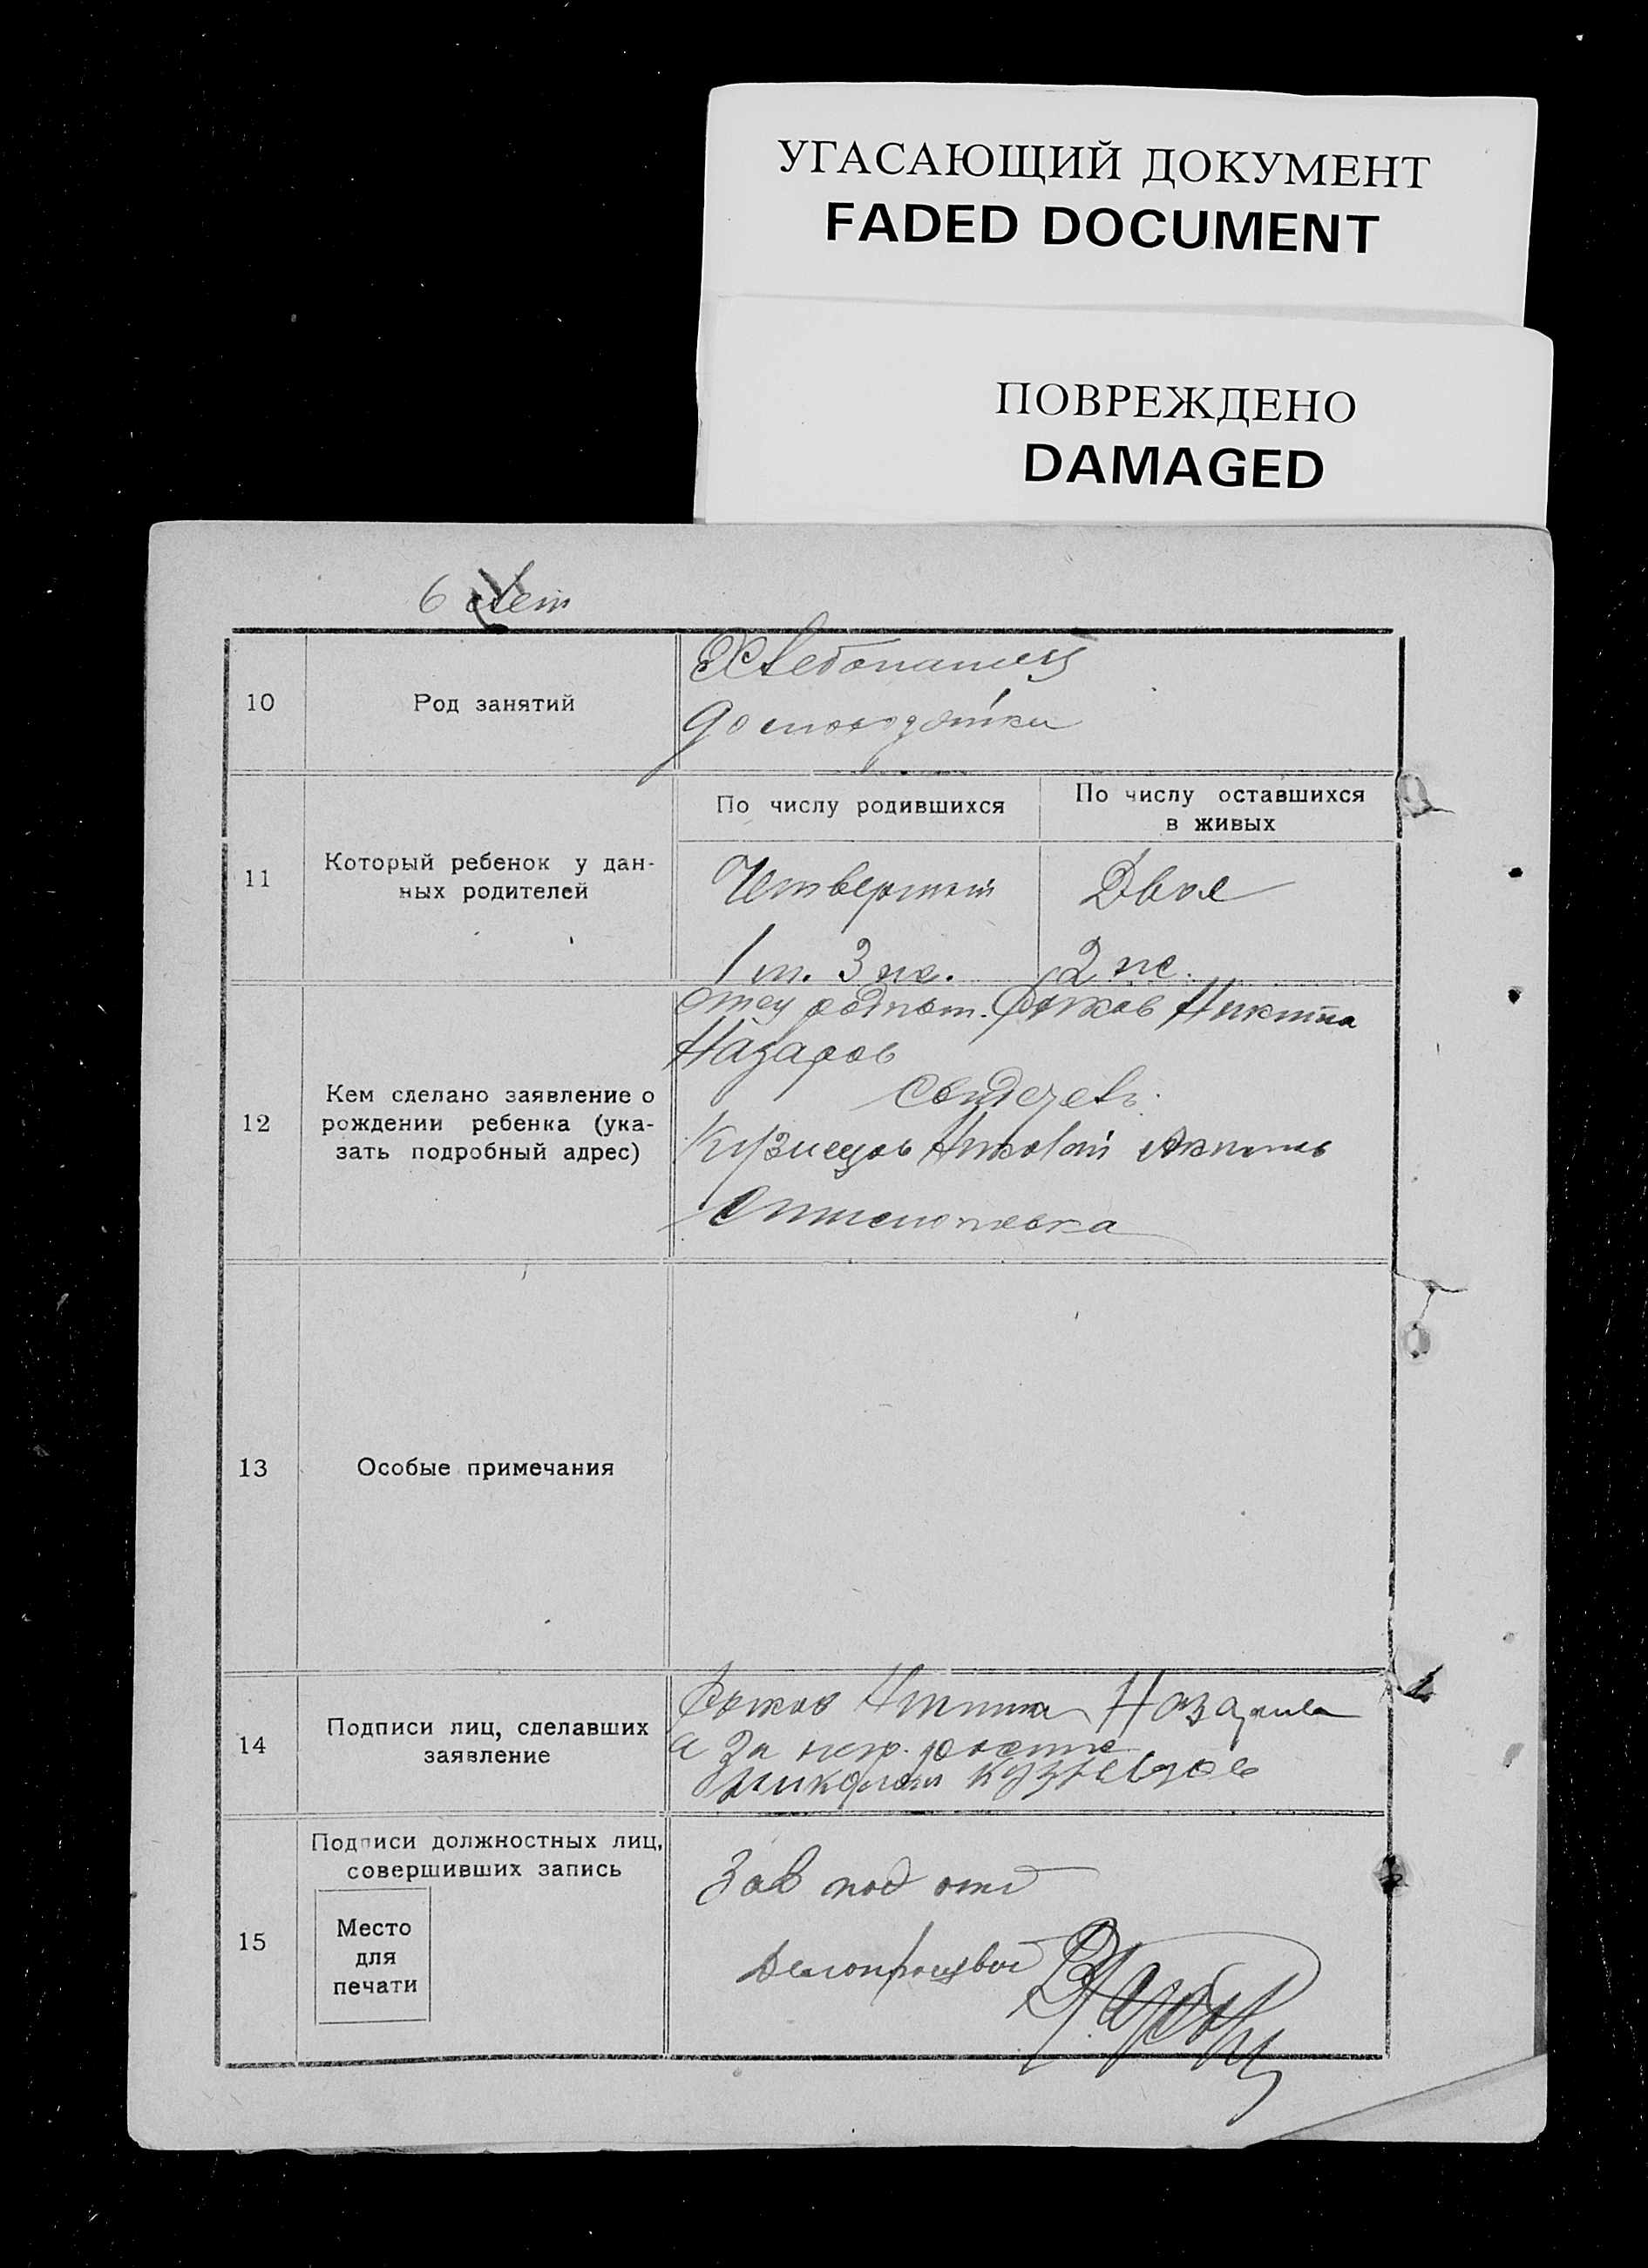 УГАСАЮЩИЙ ДОКУМЕНТ
FADED DOCUMENT
ПОВРЕЖДЕНО
DAMAGED
6 лет
10
Род занятий
Хлебопашец
11
Который ребенок у дан-
ных родителей
По числу родившихся
По числу оставшихся
в живых
Четвертый
Двоя
1 м. 3 ж.
2 ж.
12
Кем сделано заявление о
рождении ребенка (ука-
зать подробный адрес)
отец Никита
Назаров
Кузнецов Николай
13
Особые примечания
14
Подписи лиц, сделавших
заявление
а за
Николай Кузнецов
15
Подписи должностных лиц,
совершивших запись
Место
для
печати
Зав под отд
Делопроизвод